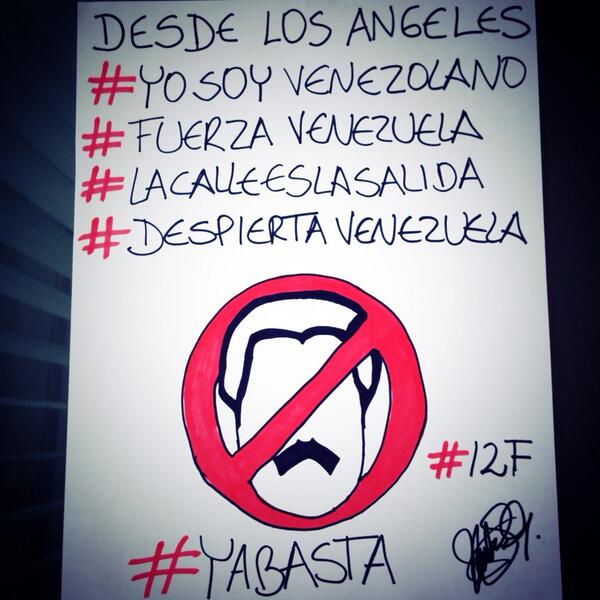 DESDE LOS ANGELES
#YO SOY VENEZOLANO
#FUERZA VENEZUELA
#LACALLEESLASALIDA
#DESPIERTA VENEZUELA
#12F
#YABASTA